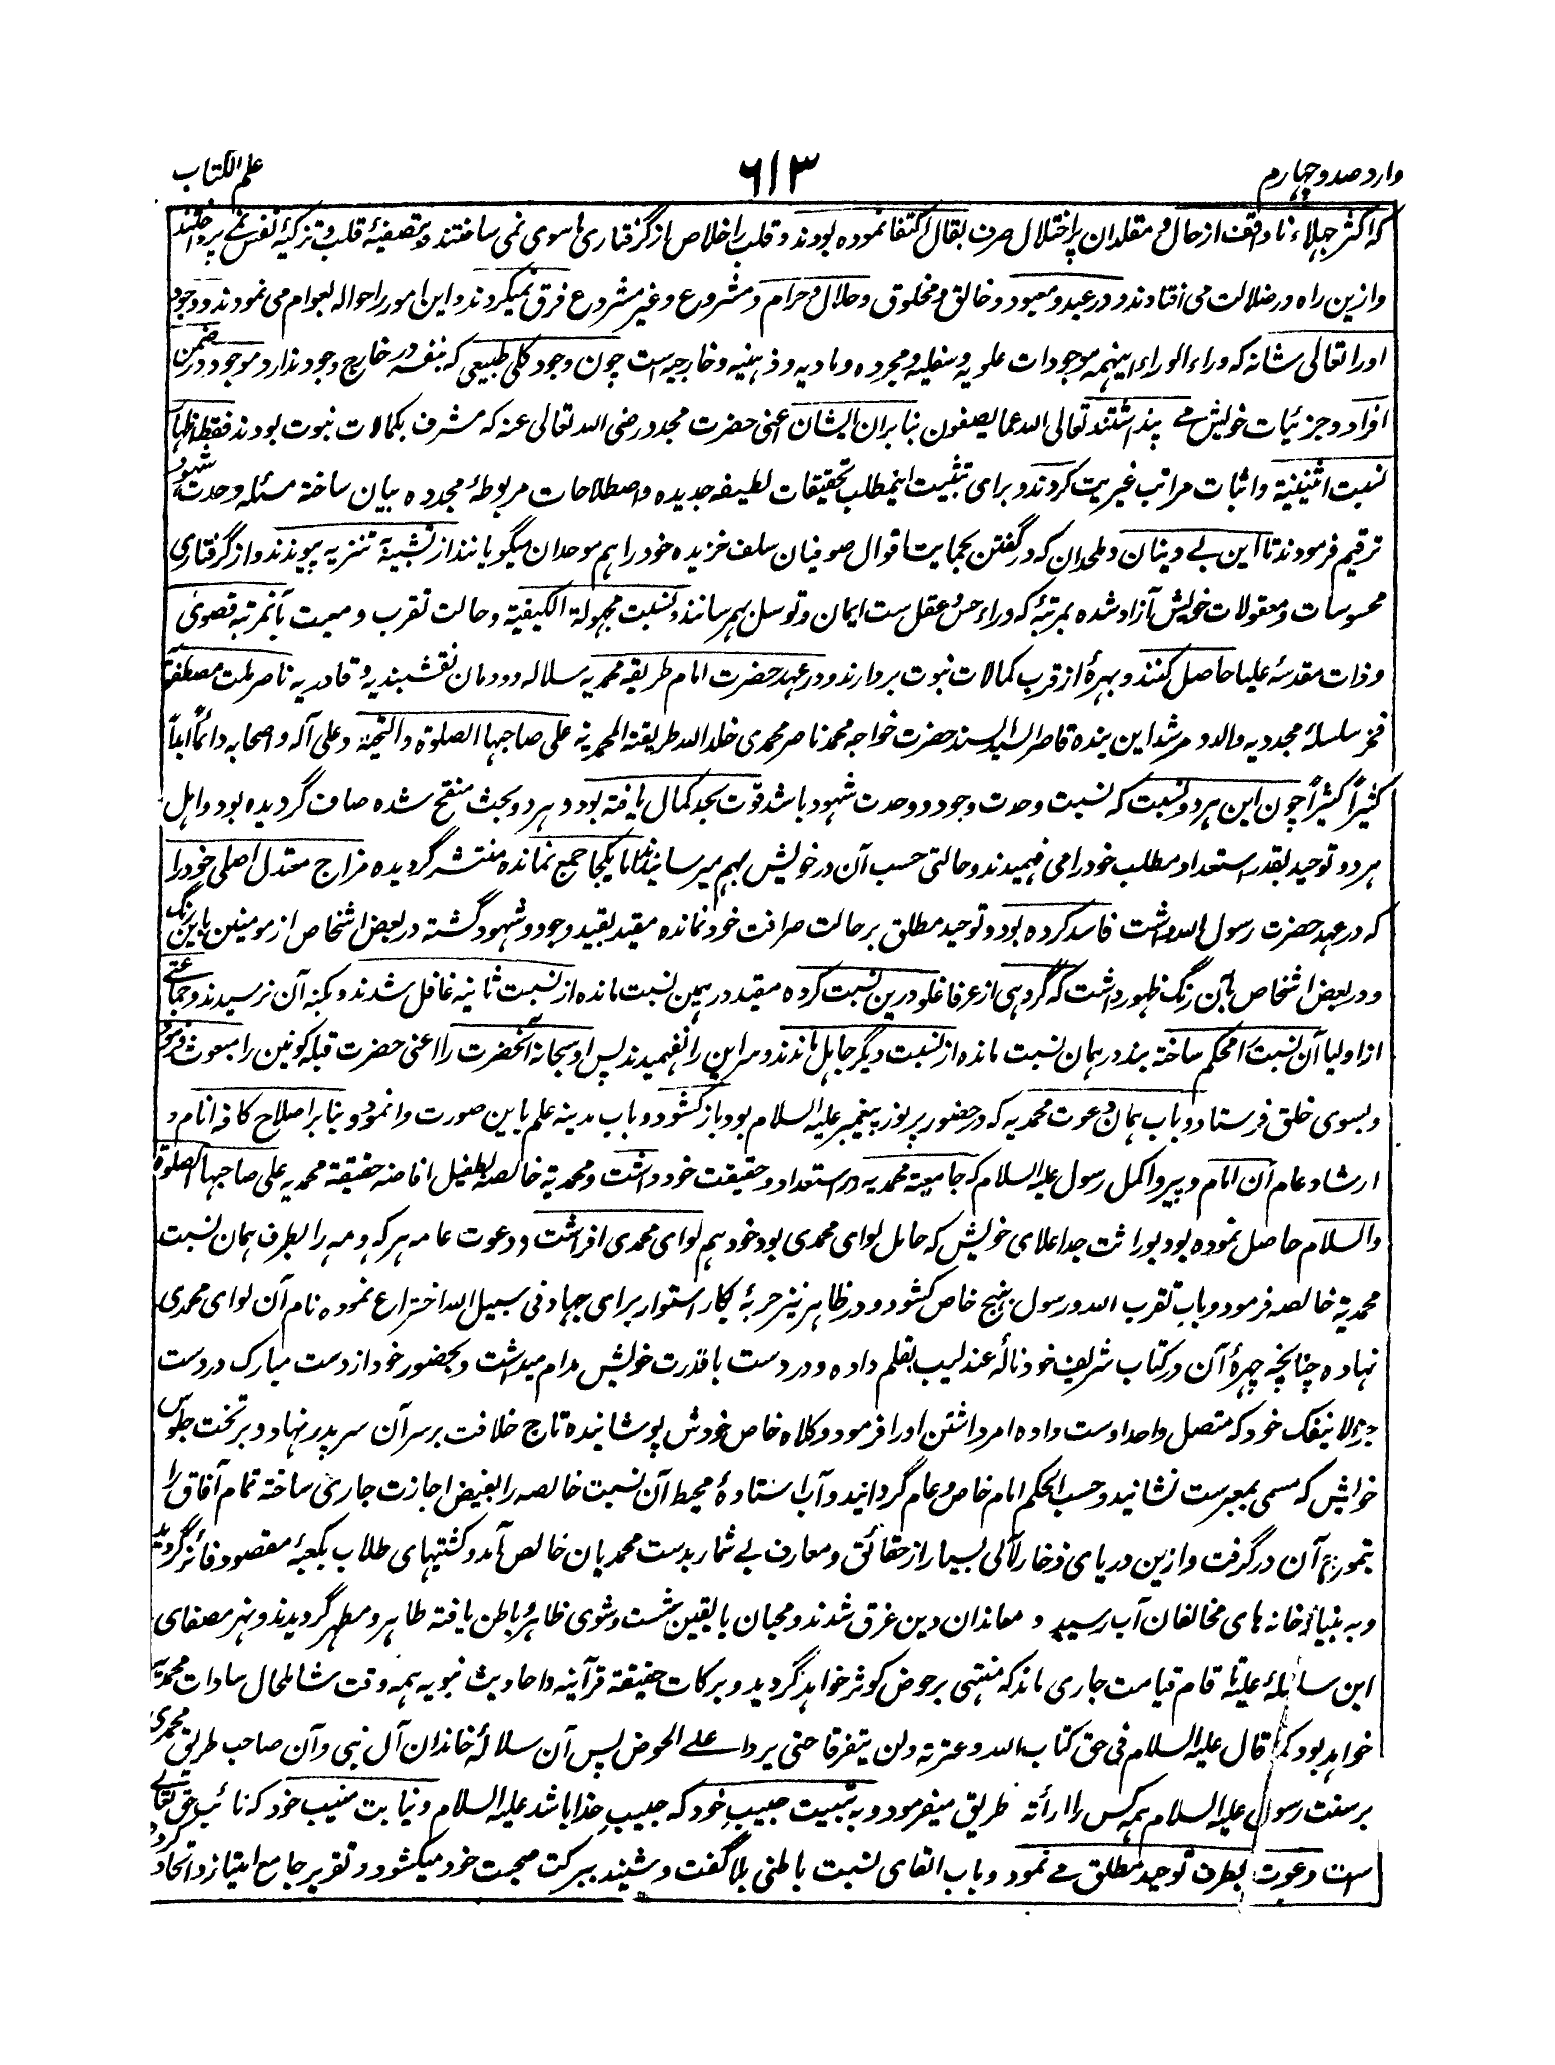 وارد صد و چهارم
۶۱۳
علم الکتاب
که اکثر جهلاء ناواقف از حال و مقلدان پر اختلال صرف بقال اکتفا نموده بودند و قلب را خلاص از گرفتاری ماسوی نمی ساختند و بتصفیهٔ قلب و تزکیهٔ نفس نمی پرداختند
و ازین راه در ضلالت می افتادند و در عبد و معبود و خالق و مخلوق و حلال و حرام و مشروع و غیر مشروع فرق نمیکردند و این امور را حواله بعوام می نمودند و وجود
او را تعالی شانه که وراء الوراء اینهمه موجودات علویه و سفلیه و مجرده و مادیه و ذهنیه و خارجیه است چون وجود کلی طبیعی که بنفسه در خارج وجود ندارد موجود در ضمن
افراد و جزئیات خویش می پنداشتند تعالی الله عما یصفون بنا بران ایشان اعنی حضرت مجدد رضی الله تعالی عنه که مشرف بکمالات نبوت بودند فقط اظهار
نسبت اثنینیة و اثبات مراتب غیریت کردند و برای تثبیت اینمطلب تحقیقات لطیفه جدیده و اصطلاحات مربوطهٔ مجدده بیان ساخته مسئله وحدت شهود
ترقیم فرمودند تا این بی دینان و ملحدان که در گفتن بحمایت اقوال صوفیان سلف خزیده خود را هم موحدان میگویانند از تشبیه تنزیه پیوندند و از گرفتاری
محسوسات و معقولات خویش آزاد شده بمرتبهٔ که وراء حس و عقل ست ایمان و توسل بهم رسانند و نسبت مجهولة الکیفیة و حالت تقرب و معیت بآنمرتبه قصوی
و ذات مقدسهٔ علیا حاصل کنند و بهرهٔ از قرب کمالات نبوت بردارند و در عهد حضرت امام طریقه محمدیه سلاله دودمان نقشبندیه و قادریه ناصر ملت مصطفویه
فخر سلسلهٔ مجددیه والد و مرشد این بنده قاصر السید السند حضرت خواجه محمد ناصر محمدی خلد الله طریقته المحمدیه علی صاحبها الصلوة والتحیة و علی آله و اصحابه دائماً ابداً
کثیراً کثیراً چون این هر دو نسبت که نسبت وحدت وجود و وحدت شهود باشد قوت بحد کمال یافته بود و هر دو بحث منقح شده صاف گردیده بود و اهل
هر دو توحید بقدر استعداد مطلب خود را می فهمیدند و حالتی حسب آن در خویش بهم میرسانیدند اما یکجا جمع نمانده منتشر گردیده مزاج معتدل اصلی خود را
که در عهد حضرت رسول الله داشت فاسد کرده بود و توحید مطلق بر حالت صرافت خود نمانده مقید بقید وجود و شهود گشته در بعض اشخاص از مومنین باین رنگ
و در بعض اشخاص بآن رنگ ظهور داشت که گروهی از عرفا غلو درین نسبت کرده مقید در همین نسبت مانده از نسبت ثانیه غافل شدند و بکنه آن نرسیدند و جماعتی
از اولیا آن نسبت را محکم ساخته بند در همان نسبت مانده از نسبت دیگر جاهل ماندند و سر این را نفهمیدند پس او سبحانه آنحضرت را اعنی حضرت قبله کونین را مبعوث فرمود
و بسوی خلق فرستاد و باب همان دعوت محمدیه که در حضور پر نور پیغمبر علیه السلام بود باز کشود و باب مدینه علم باین صورت وانمود و بنا بر اصلاح کافه انام و
ارشاد عام آن امام و پیرو اکمل رسول علیه السلام که جامعیة محمدیه در استعداد و حقیقت خود داشت و محمدیة خالصه بطفیل افاضه حقیقة محمدیه علی صاحبها الصلوة
والسلام حاصل نموده بود بوراثت جد اعلای خویش که حامل لوای محمدی بود خود هم لوای محمدی افراشت و دعوت عامه هر که و مه را بطرف همان نسبت
محمدیة خالصه فرمود و باب تقرب الله و رسول بنهج خاص کشود و در ظاهر نیز حربهٔ بکار استوار برای جهاد فی سبیل الله اختراع نموده نام آن لوای محمدی
نهاده چنانچه چهرهٔ آن در کتاب شریف خود نالهٔ عندلیب بقلم داده و در دست باقدرت خویش مدام میداشت و بحضور خود از دست مبارک در دست
جزء لاینفک خود که متصل واحد اوست داده امر داشتن او را فرمود و کلاه خاص خودش پوشانیده تاج خلافت بر سر آن سر بدر نهاد و بر تخت جلوس
خویش که مسمی بمعبرست نشانید و حسب الحکم امام خاص و عام گردانید و آب استادهٔ محیط آن نسبت خالصه را بفیض اجازت جاری ساخته تمام آفاق را
بتموج آن درگرفت و ازین دریای ذخار لآلی بسیار از حقائق و معارف بی شمار بدست محمدیان خالص آمد و کشتیهای طلاب بکعبهٔ مقصود فائز گردید
و به بنیاد خانه های مخالفان آب رسید و معاندان دین غرق شدند و محبان بالیقین شست و شوی ظاهر و باطن یافته طاهر و مطهر گردیدند و نهر مصفای
این سلسلهٔ علیه تا قیام قیامت جاری ماند که منتهی بر حوض کوثر خواهد گردید و برکات حقیقة قرآنیه و احادیث نبویه همه وقت شامل حال سادات محمدیه
خواهد بود کما قال علیه السلام فی حق کتاب الله و عترته ولن یتفرقا حتی یردا علی الحوض پس آن سلالهٔ خاندان آل نبی و آن صاحب طریق محمدی
بر سنت رسول علیه السلام همه کس را ارائهٔ طریق میفرمود و به تبعیت حبیب خود که حبیب خدا باشد علیه السلام و نیابت منیب خود که نائب حق تعالی
است دعوت بطرف توحید مطلق می نمود و باب القای نسبت باطنی بلا گفت و شنید ببرکت صحبت خود میکشود و تقریر جامع امتیاز و اتحاد کرده